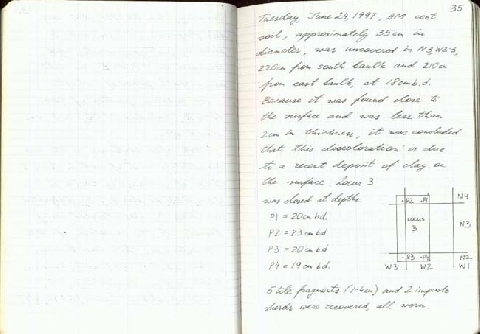 35
Tuesday, June 24, 1997, AM cont.
soil, approximately 35cm in
diameter, was uncovered in N3,W2-3,
220cm from south baulk and 210cm
from east baulk, at 18cmb.d.
Because it was found close to
the surface and was less than
2cm in thickness, it was concluded
that this discoloration is due
to a recent deposit of clay on
the surface. Locus 3
was closed at depths
P1 = 20cm bd.
P2 = 23cm bd
P3 = 20cm bd
P4 = 19cm bd.
P2 P1 N4
Locus
3
N3
P3 P4 N2
W3 W2 W1
5 tile fragments (1-4cm) and 2 impasto
sherds were recovered, all worn.